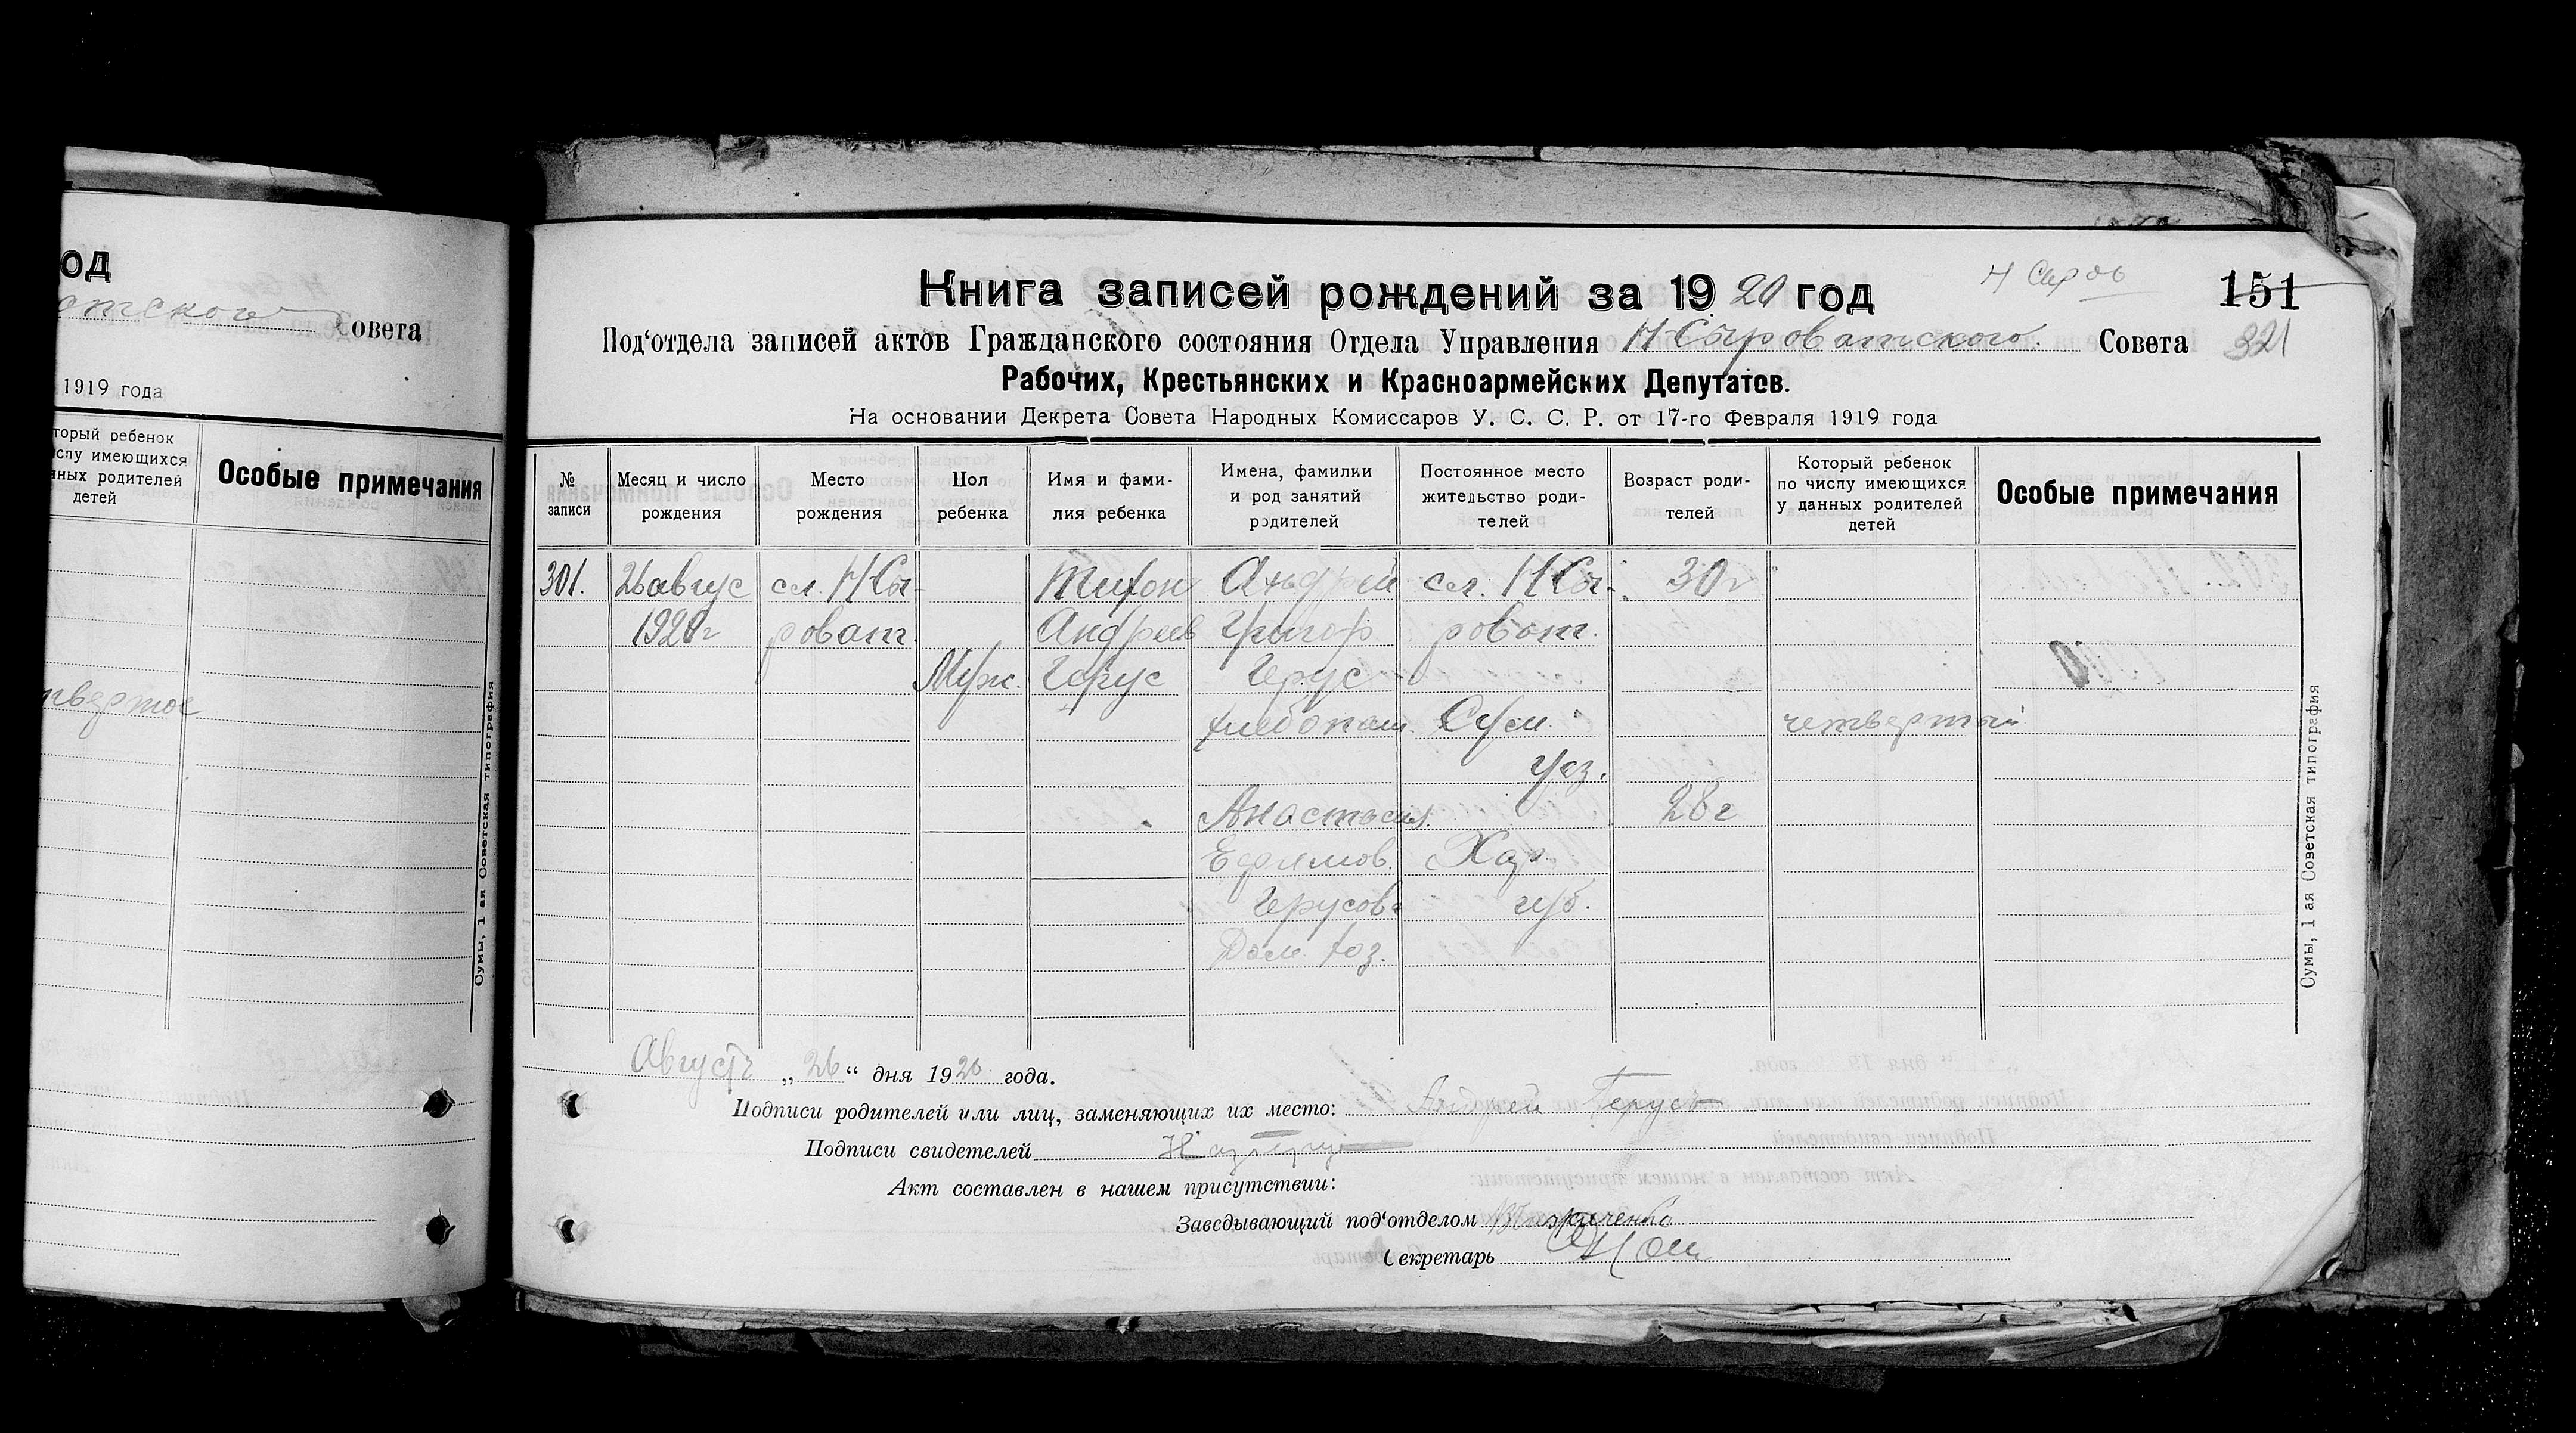 од
отского Совета
1919 года
торый ребенок
слу имеющихся
нных родителей
детей
Особые примечания
твертое
Сумы, 1 ая Советская типография
Н Сыров
Книга записей рождений за 1920 год
151
Под‘отдела записей актов Гражданского состояния Отдела Управления Н Сыроватского Совета
321
Рабочих, Крестьянских и Красноармейских Депутатов.
На основании Декрета Совета Народных Комиссаров У. С. С. Р. от 17-го Февраля 1919 года
№ записи
Месяц и число рождения
Место рождения
Пол ребенка
Имя и фами-лия ребенка
Имена, фамилии и род занятий родителей
Постоянное место жительство роди-телей
Возраст роди-телей
Который ребенок по числу имеющихся у данных родителей детей
Особые примечания
301. 26 авгус сл. Н Сы- Тихон Андрей сл. Н Сы- 30 г
1920 г роват. Андреев Григор роват.
Муж. Герус Герус
хлебопаш. Сум. четвертый
уез.
Анастасия 28 г
Ефимов. Хар.
Герусова губ.
Дом. хоз.
Август „26“ дня 1920 года.
Подписи родителей или лиц, заменяющих их место: Андрей Герус
Подписи свидетелей
Акт составлен в нашем присутствии:
Заведывающий под‘отделом
Секретарь
Сумы, 1 ая Советская типография